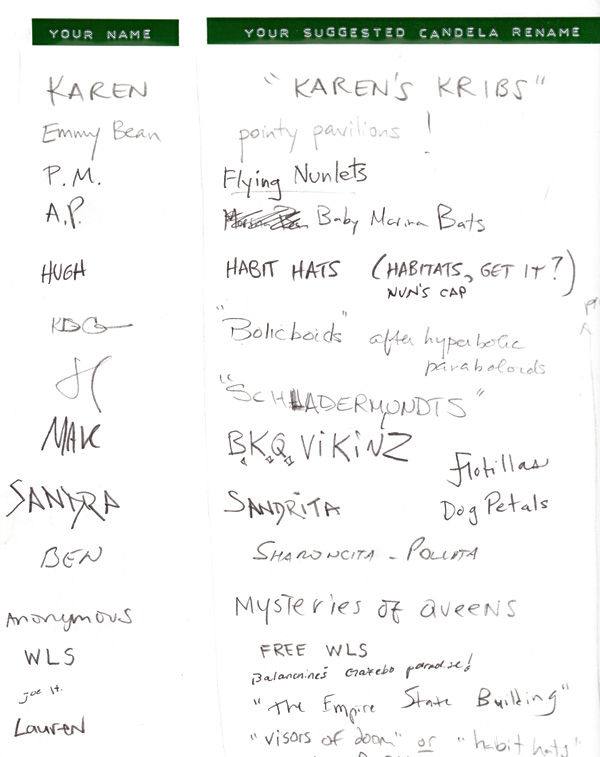 YOUR NAME YOUR SUGGESTED CANDELA RENAME
KAREN "KAREN'S KRIBS"
Emmy Bean pointy pavilions!
P.M. Flying Nunlets
A.P. Baby Marina Bats
HUGH HABIT HATS (HABITATS, GET IT?)
NUN'S CAP
"Bolicboids" after hyperbolic
paraboloids
"SCHADERMUNDTS"
MAK B.K.Q. ViKiNZ
flotillas
SANDRA SANDRITA Dog Petals
BEN SHARONCITA - POLLITA
Anonymous Mysteries of Queens
WLS FREE WLS
Balanchine's Gazebo paradise!
joe H. "The Empire State Building"
Lauren "visors of doom" or "habit hats"